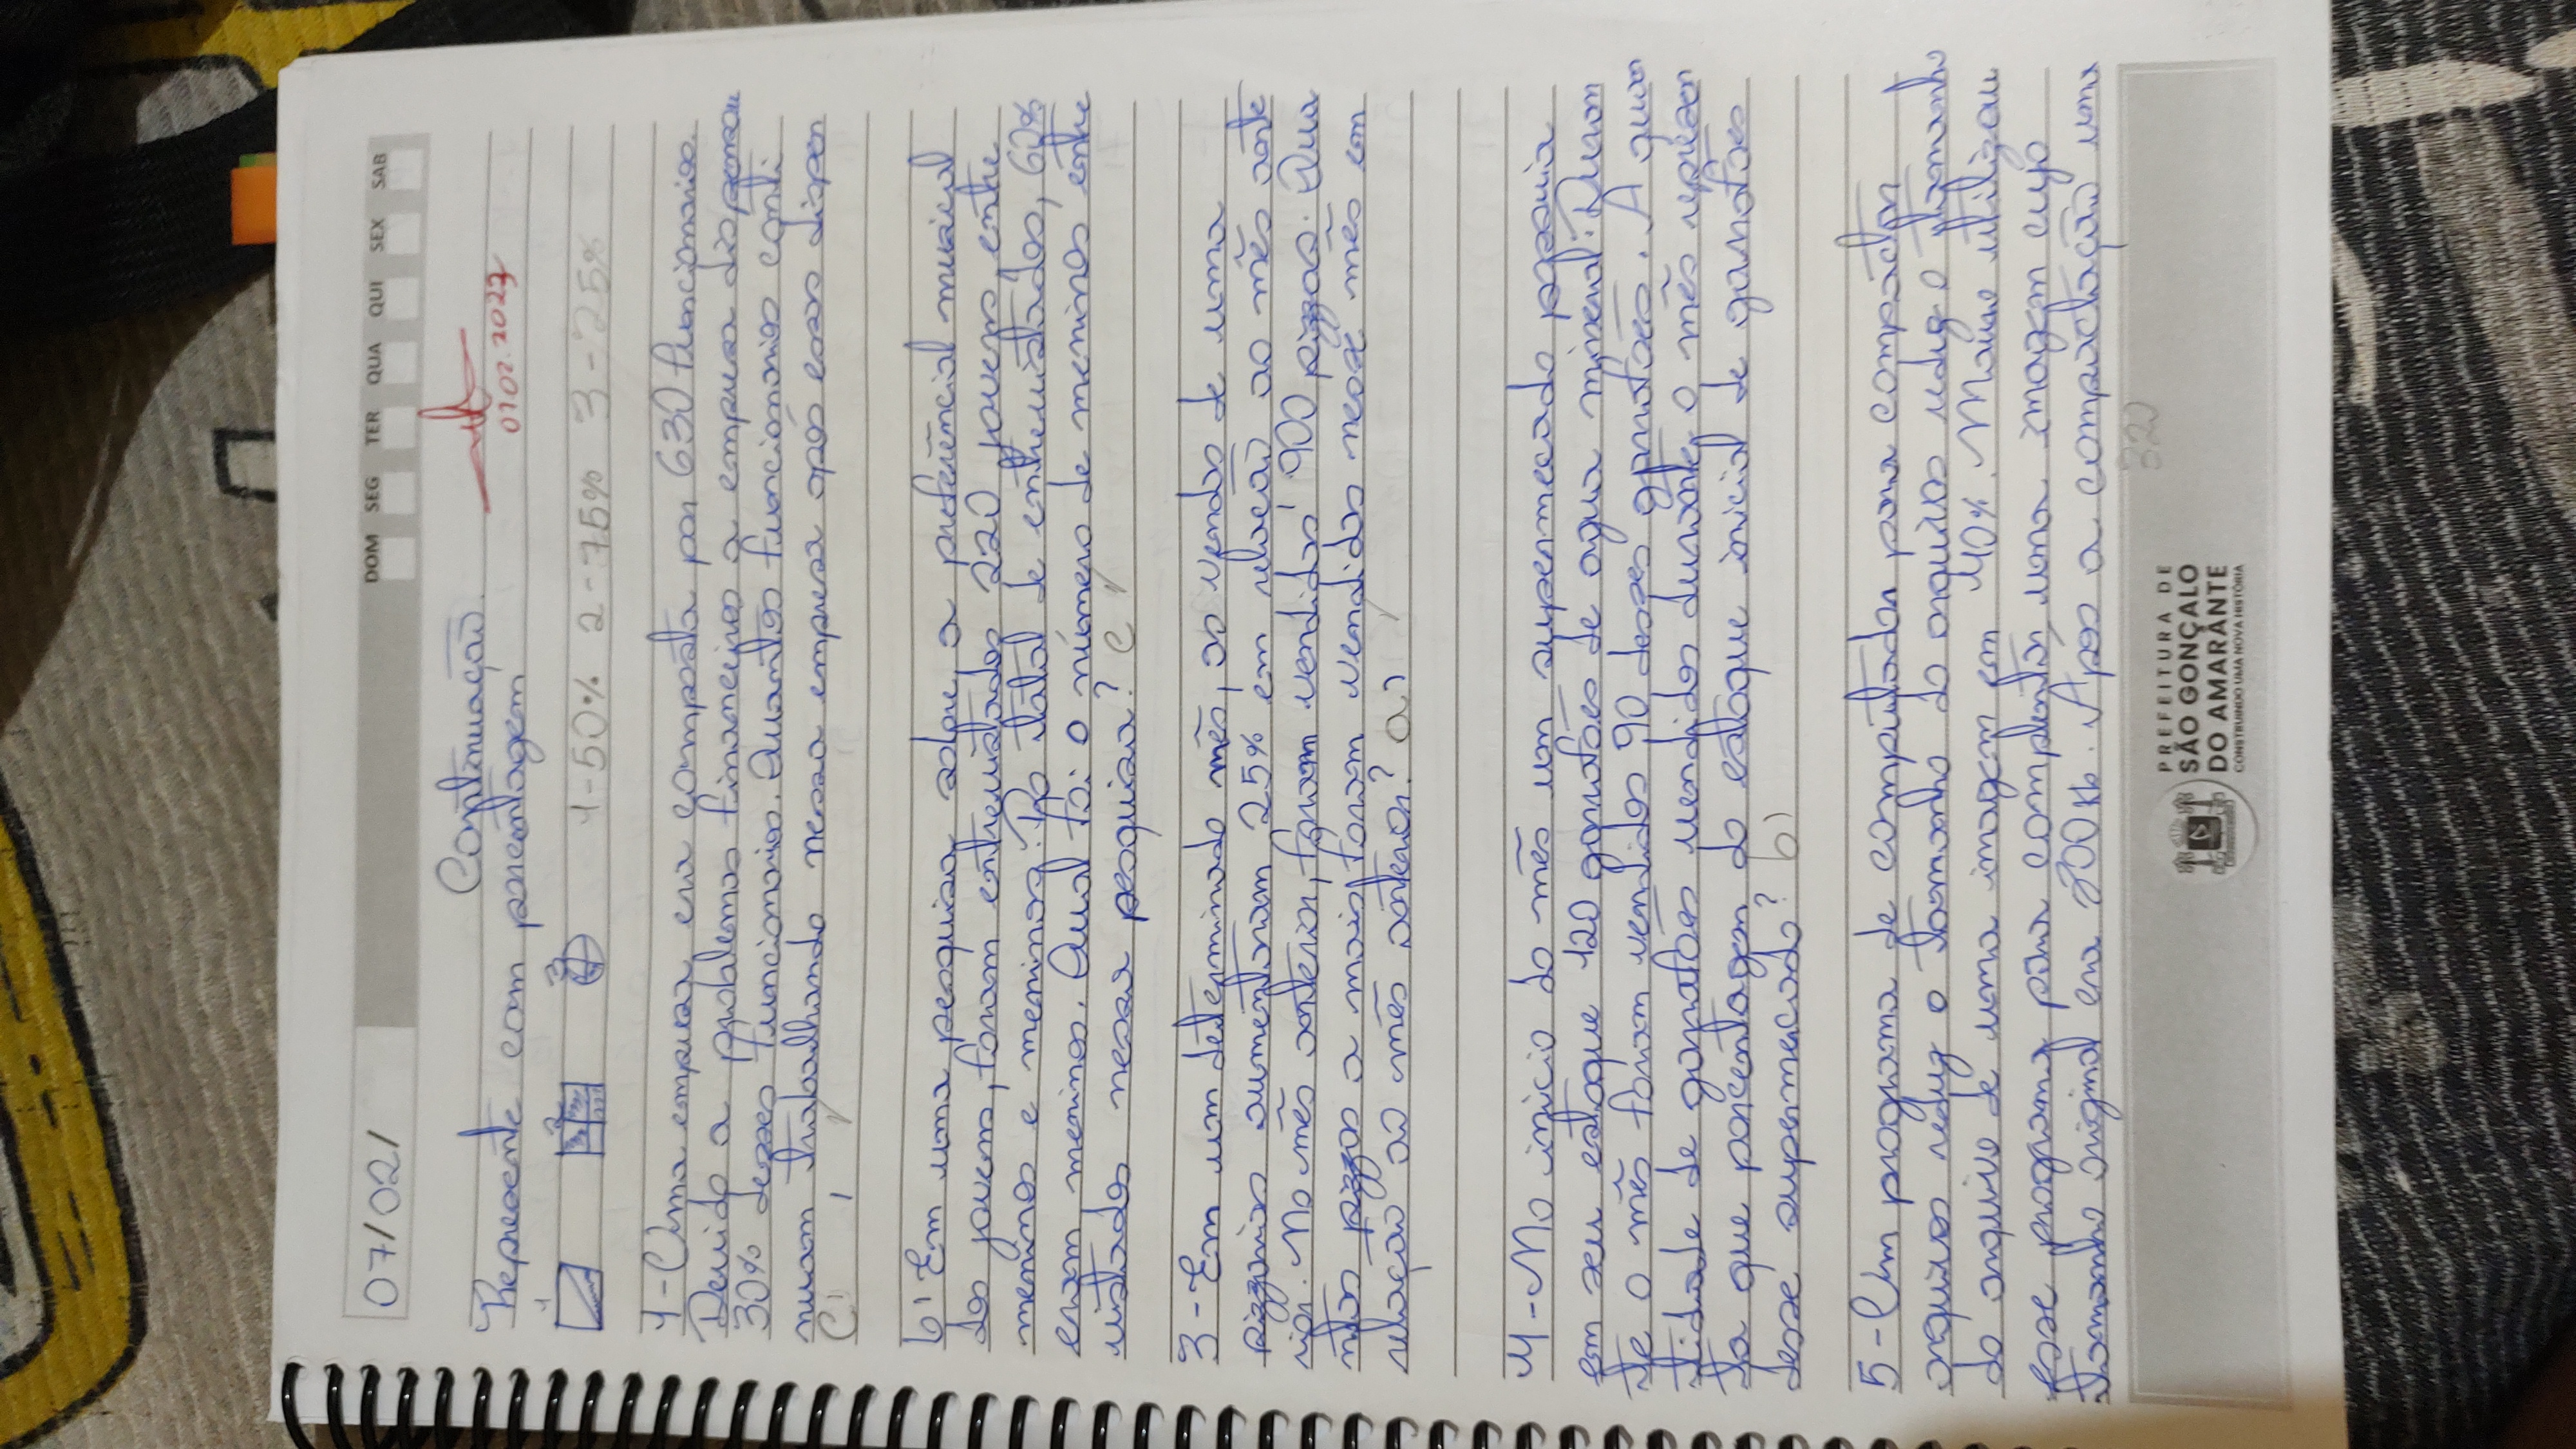 07/02/
DOM SEG TER QUA QUI SEX SAB
Continuação
Represente com porcentagem
07.02.2023
1 2 3
1-50% 2-75% 3-25%
1-Uma empresa era composta por 630 funcionarios.
Devido a problemas financeiros a empresa dispensou
30% desses funcionarios. Quantos funcionarios conti
nuam trabalhando nessa empresa após essas dispen
C)
b) Em uma pesquisa sobre a preferêncial musical
dos jovens, foram entrevistados 220 jovens, entre
meninos e meninas. Do total de entrevistados, 60%
eram meninos. Qual foi o número de meninos entre
vistados nessa pesquisa? C
3-Em um determinado mês, as vendas de uma
pizzarias aumentaram 25% em relação ao mês ante
rior. No mês anterior, foram vendidas 900 pizzas. Qua
ntas pizzas a mais foram vendidas nesse mês em
relação ao mês anterior? a)
4-No inicio do mês um supermecado possuia
em seu estoque 120 garrafões de agua mineral. Duran
te o mês foram vendidos 90 desses garrafões. A quan
tidade de garrafões vendidos durante o mês represen
ta que porcentagem do estoque inicial de garrafões
desse supermecado? b)
5-Um programa de computador para compactar
arquivos reduz o tamanho do arquivos reduz o tamanho
do arquivo de uma imagem em 40%. Mauro utilizou
esse programa para uma imagem cujo
tamanho original era 800 kb. Após a compactação uma
320
PREFEITURA DE
SÃO GONÇALO
DO AMARANTE
CONSTRUINDO UMA NOVA HISTÓRIA